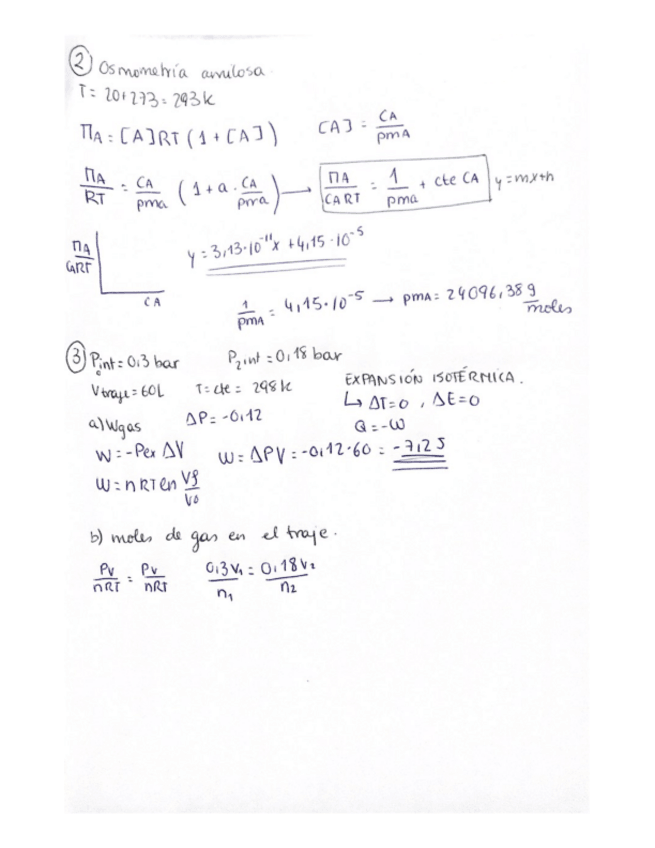 ② Osmometría amilosa.
T = 20+273 = 293 k
ΠA = [A]RT (1 + [A])    [A] = CA/pmA
ΠA/RT = CA/pma (1 + a · CA/pma) → ΠA/CART = 1/pma + cte CA    y = mx+n
ΠA/CART    y = 3,13·10⁻¹¹x + 4,15·10⁻⁵
CA
1/pmA = 4,15·10⁻⁵ → pmA = 24096,38 g/moles
③ Pint = 0,3 bar    P2int = 0,18 bar
Vtraje = 60L    T = cte = 298 k    EXPANSIÓN ISOTÉRMICA.
↳ ΔT=0, ΔE=0
a) Wgas    ΔP = -0,12    Q = -W
W = -Pex ΔV    W = ΔPV = -0,12·60 = -7,2 J
W = nRT ln Vf/V0
b) moles de gas en el traje.
Pv/nRT = Pv/nRT    0,3V1/n1 = 0,18V2/n2